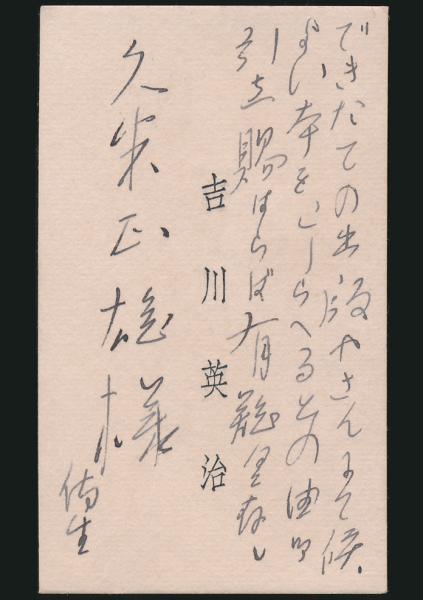 できたての出版やさんにて候、
よい本をこしらへるその由
引立賜はらば有難く存し
吉川英治
久米正雄様
侍生